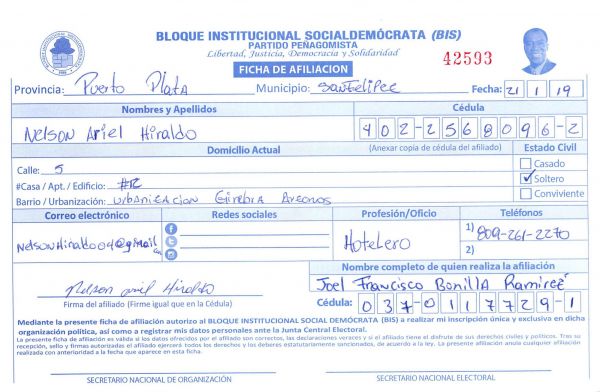 BLOQUE INSTITUCIONAL SOCIALDEMÓCRATA (BIS)
PARTIDO PEÑAGOMISTA
Libertad, Justicia, Democracia y Solidaridad
42593
FICHA DE AFILIACION
Provincia: Puerto Plata Municipio: San Felipee Fecha: 21 1 19
Nombres y Apellidos Cédula
Nelson Ariel Hiraldo 402-2568096-2
Domicilio Actual (Anexar copia de cédula del afiliado) Estado Civil
Calle: 5 Casado
#Casa / Apt. / Edificio: #12 Soltero
Barrio / Urbanización: Urbanizacion Conviviente
Correo electrónico Redes sociales Profesión/Oficio Teléfonos
1) 809-261-2270
NelsonHiraldo09@gmail Hotelero
2)
Nombre completo de quien realiza la afiliación
Nelson Ariel Hiraldo Joel Francisco Bonilla Ramirez
Firma del afiliado (Firme igual que en la Cédula) Cédula: 037-0117729-1
Mediante la presente ficha de afiliación autorizo al BLOQUE INSTITUCIONAL SOCIAL DEMÓCRATA (BIS) a realizar mi inscripción única y exclusivo en dicha
organización política, así como a registrar mis datos personales ante la Junta Central Electoral.
La presente ficha de afiliación es valida si los datos ofrecidos por el afiliado son correctas, las declaraciones veraces y si el afiliado tiene el disfrute de sus derechos civiles y políticos. Tres su
recepción, sello y firmas autorizadas el afiliado ejercerá todos los derechos y los deberes estatutariamente sancionados, de acuerdo a la ley. La presente afiliación anula cualquier afiliación
realizada con anterioridad a la fecha que aparece en esta ficha.
SECRETARIO NACIONAL DE ORGANIZACIÓN SECRETARIO NACIONAL ELECTORAL